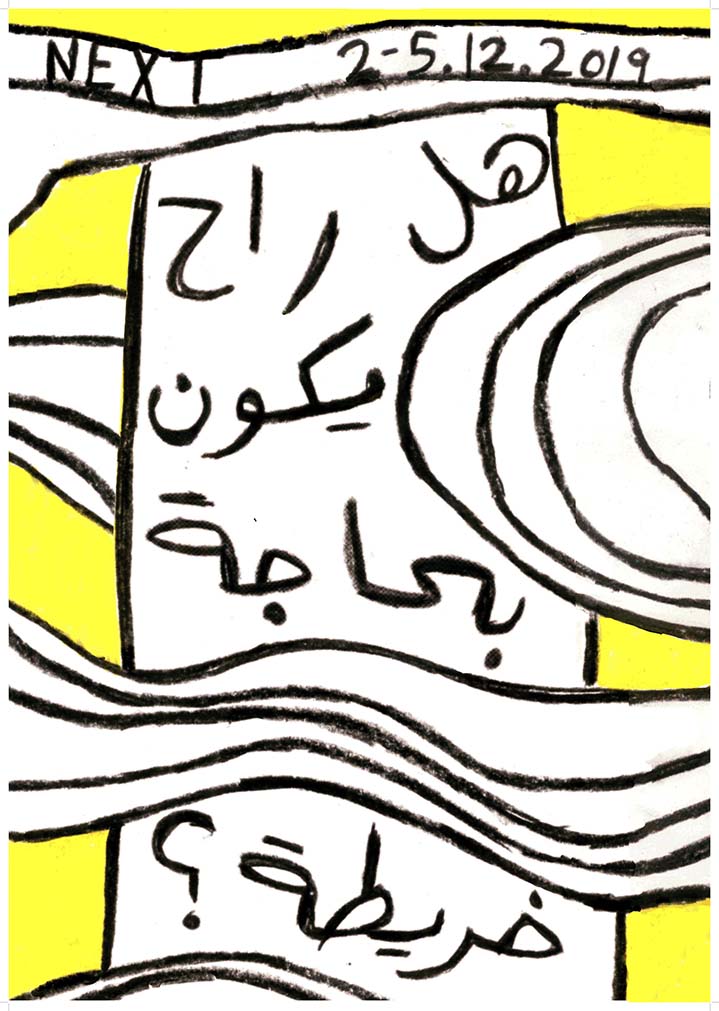 NEXT 2-5.12.2019
هل راح
يكون
بحاجة
خريطة ؟